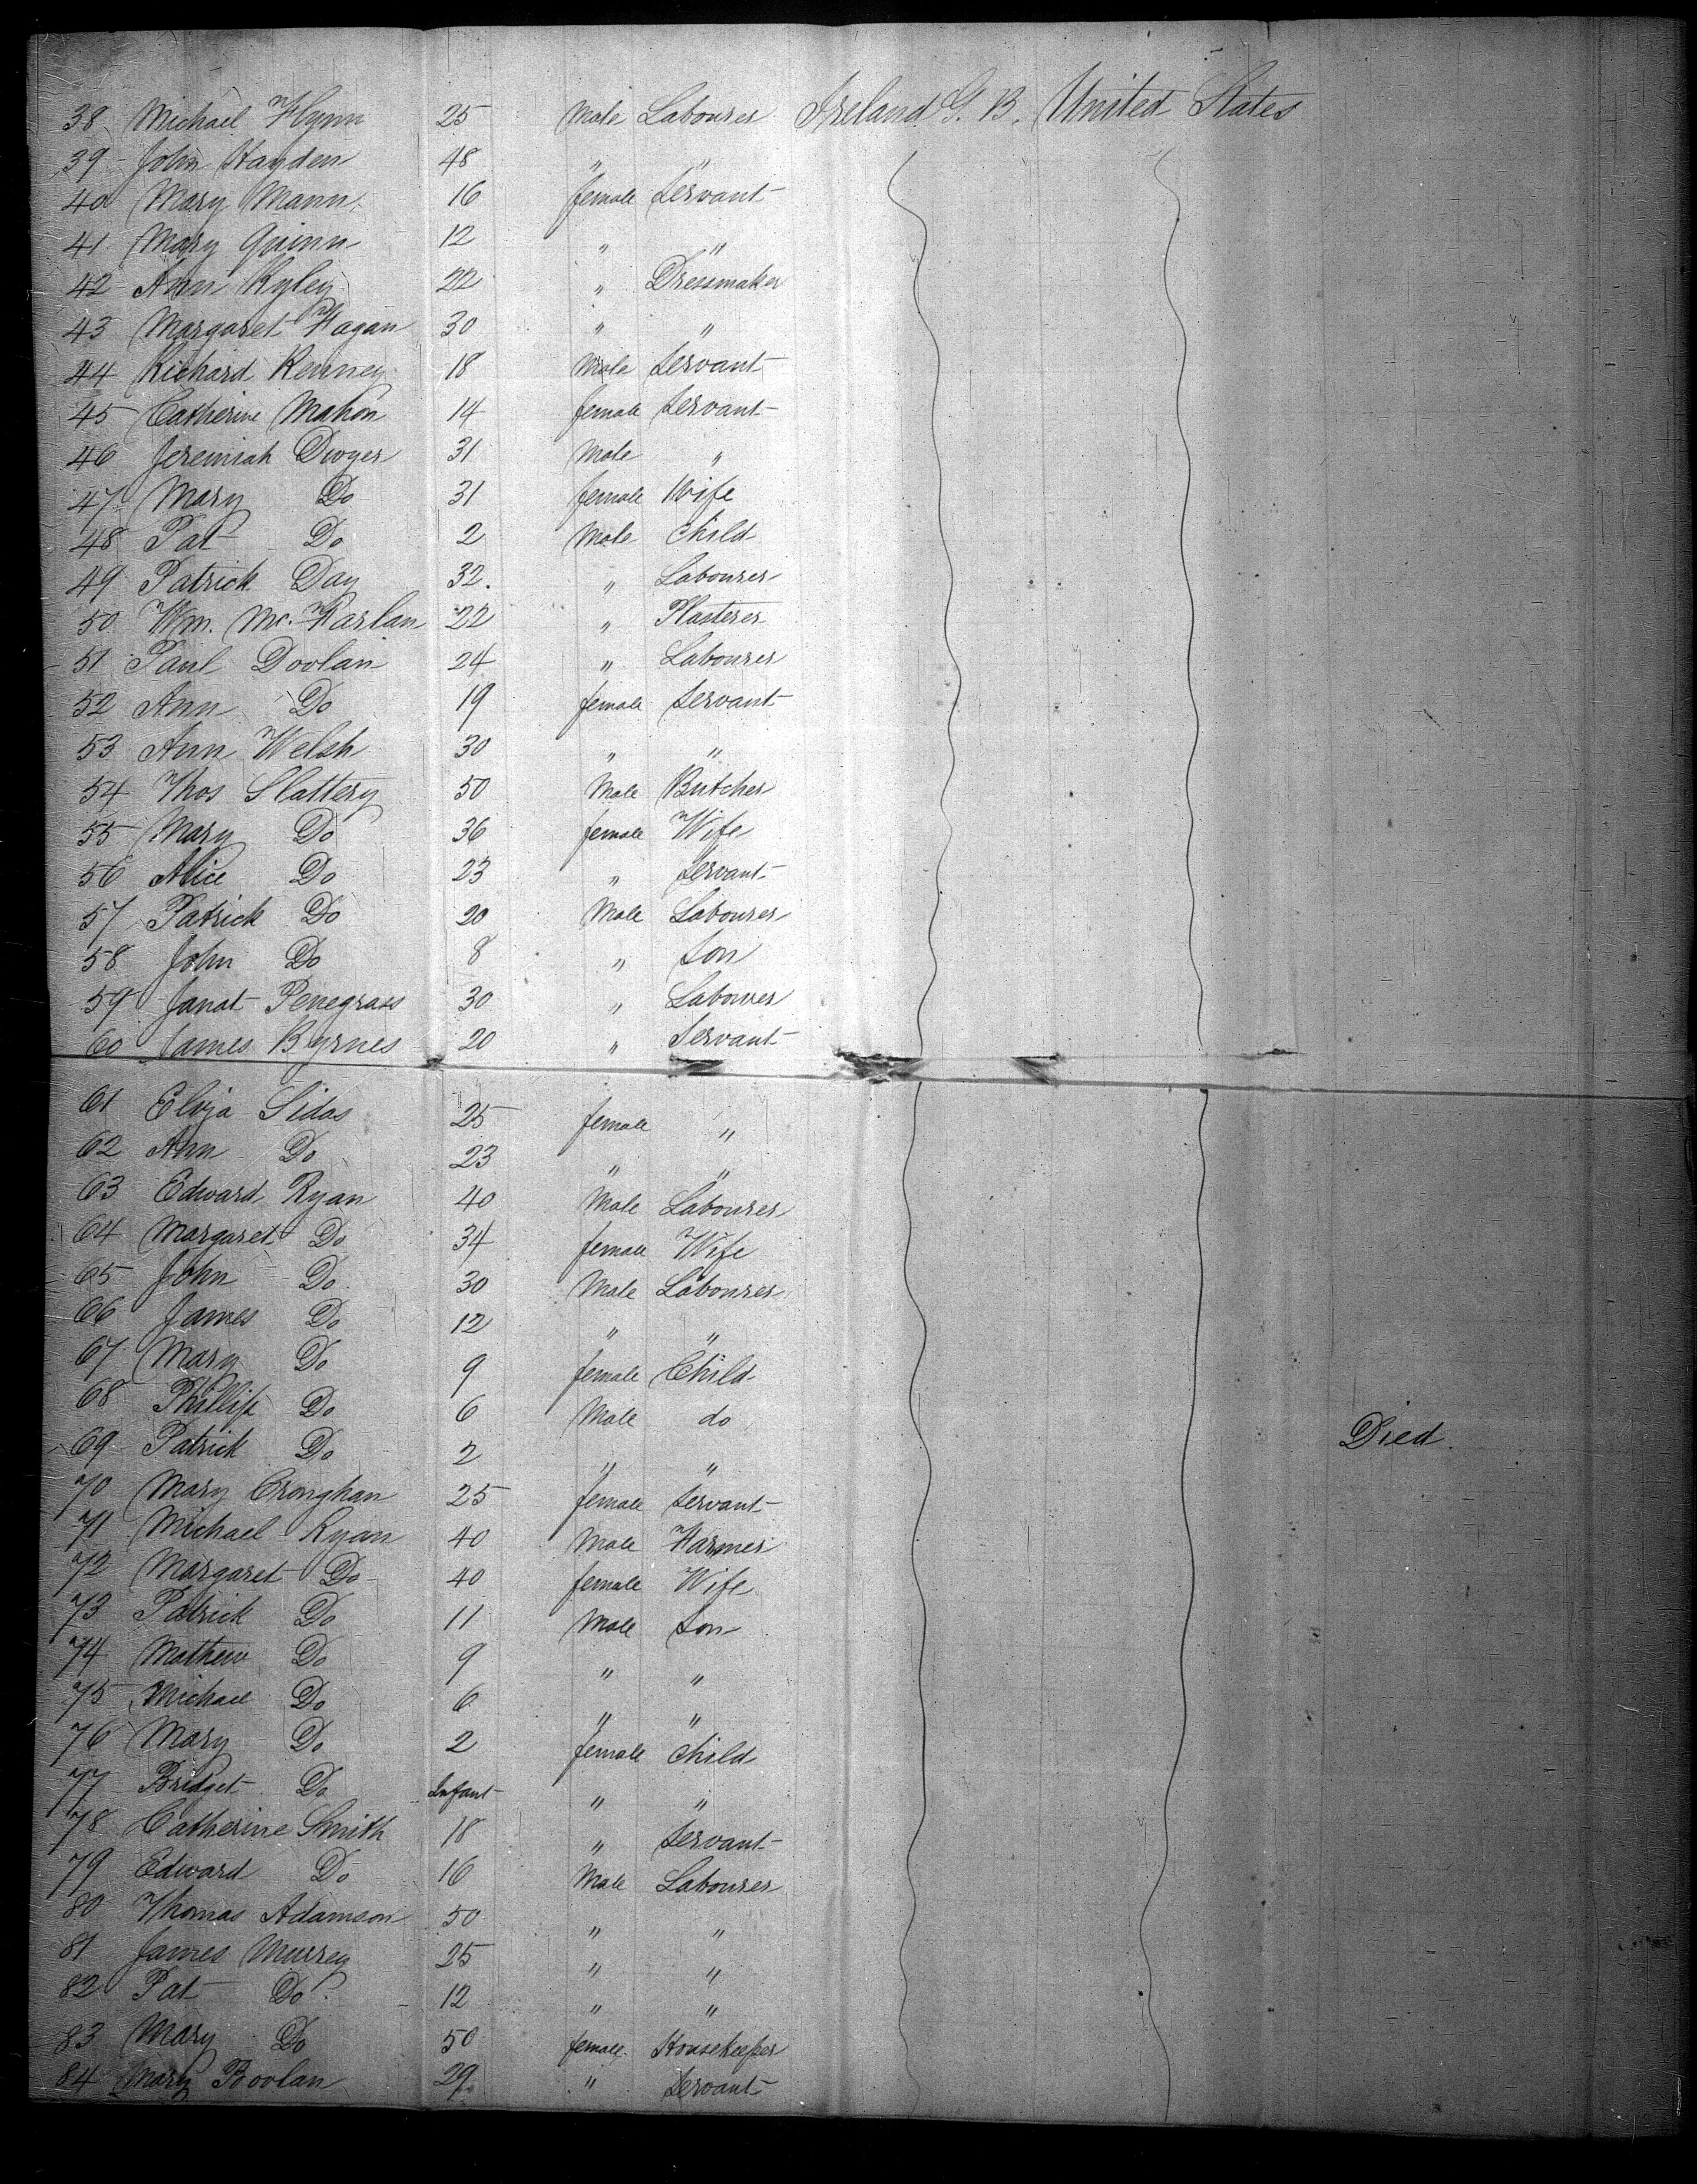 38 Michael Flynn 25 Male Labourer Ireland G. B. United States
39 John Hayden 48 " "
40 Mary Mann 16 female Servant
41 Mary Quinn 12 " "
42 Ann Ryley 22 " Dressmaker
43 Margaret Fagan 30 " "
44 Richard Kenney 18 Male Servant
45 Catherine Mahon 14 female Servant
46 Jeremiah Dwyer 31 Male "
47 Mary Do 31 female Wife
48 Pat Do 2 Male Child
49 Patrick Day 32. " Labourer
50 Wm. Mc. Farlan 22 " Plasterer
51 Paul Doolan 24 " Labourer
52 Ann Do 19 female Servant
53 Ann Welsh 30 " "
54 Thos Slattery 50 Male Butcher
55 Mary Do 36 female Wife
56 Alice Do 23 " Servant
57 Patrick Do 20 Male Labourer
58 John Do 8 " Son
59 Janat Penegrass 30 " Labourer
60 James Byrnes 20 " Servant
61 Eliza Sidas 25 female "
62 Ann Do 23 " "
63 Edward Ryan 40 Male Labourer
64 Margaret Do 34 female Wife
65 John Do 30 Male Labourer
66 James Do 12 " "
67 Mary Do 9 female Child
68 Phillip Do 6 Male do
69 Patrick Do 2 " " Died.
70 Mary Cronghan 25 female Servant
71 Michael Ryan 40 Male Farmer
72 Margaret Do 40 female Wife
73 Patrick Do 11 Male Son
74 Mathew Do 9 " "
75 Michael Do 6 " "
76 Mary Do 2 female Child
77 Bridget Do Infant " "
78 Catherine Smith 18 " Servant
79 Edward Do 16 Male Labourer
80 Thomas Adamson 50 " "
81 James Murrey 25 " "
82 Pat Do 12 " "
83 Mary Do 50 female Housekeeper
84 Mary Boolan 29 " Servant